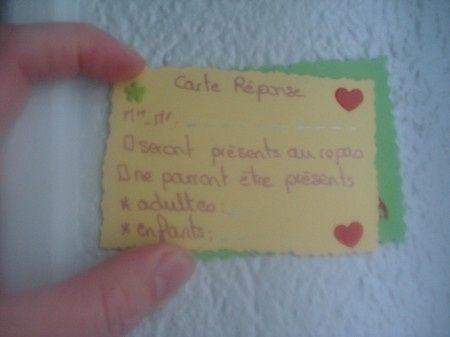 Carte Réponse
□ seront présents au repas
□ ne pourront être présents
* adultes:
* enfants: